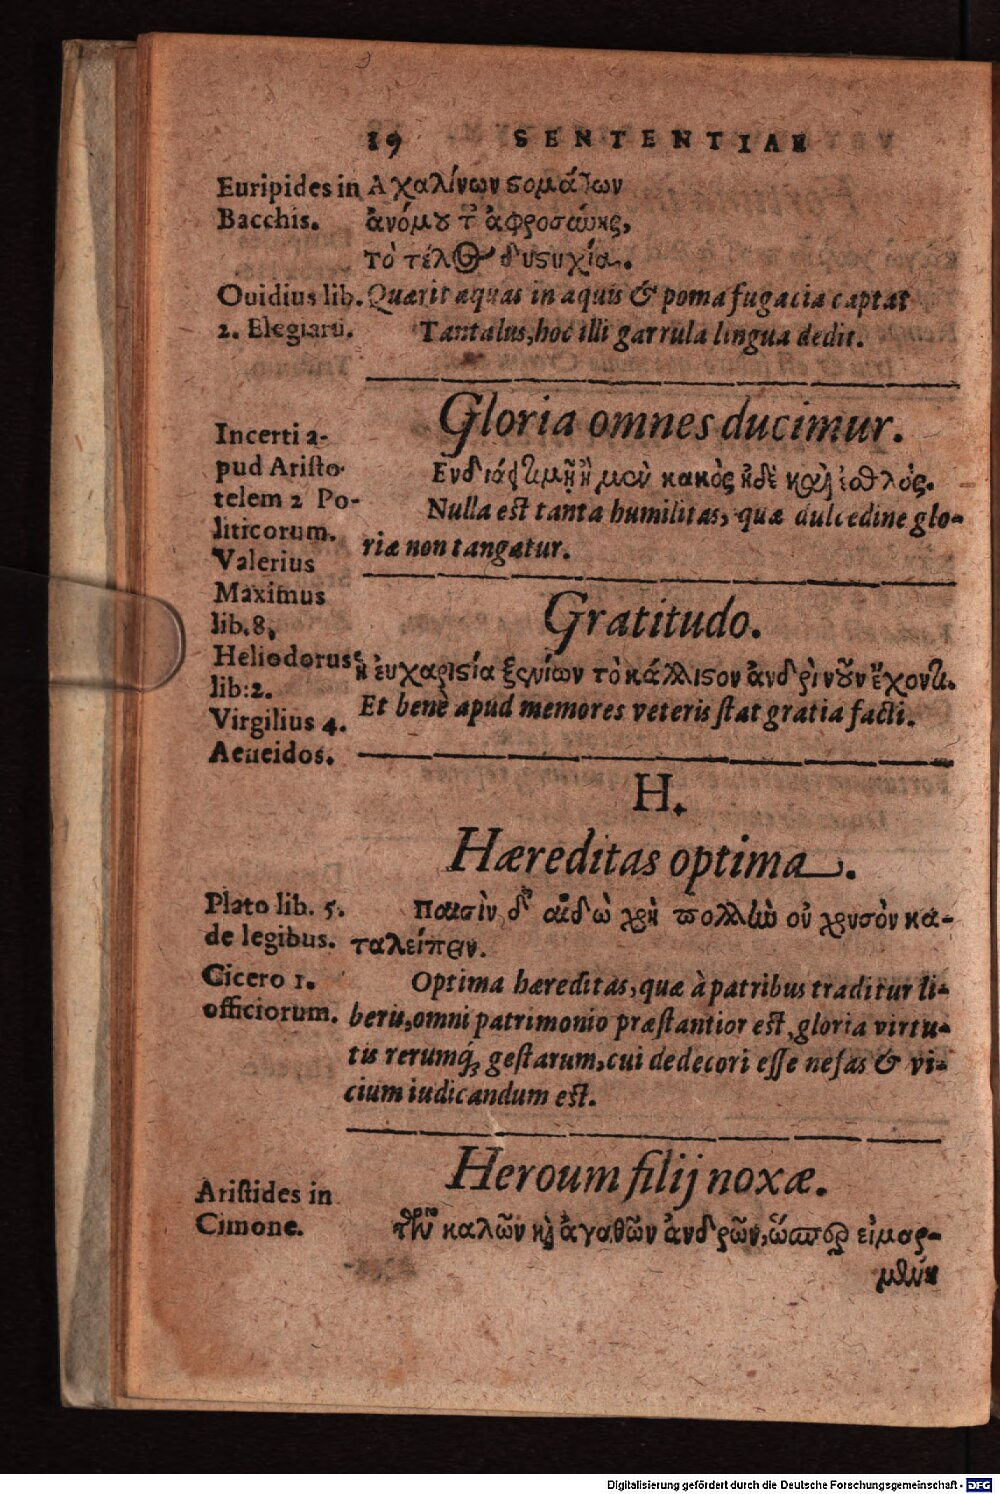 19 SENTENTIAE
Euripides in
Bacchis.
Ἀχαλίνων στομάτων
ἀνόμου τ᾽ ἀφροσύνης,
τὸ τέλος δυστυχία.
Ouidius lib.
2. Elegiarū.
Quærit aquas in aquis & poma fugacia captat
Tantalus, hoc illi garrula lingua dedit.
Gloria omnes ducimur.
Incerti a-
pud Aristo-
telem 2 Po-
liticorum.
Valerius
Maximus
lib. 8,
Heliodorus
lib: 2.
Virgilius 4.
Aeneidos.
κακὸς ἠδὲ καὶ ἐσθλός.
Nulla est tanta humilitas, quæ dulcedine glo-
riæ non tangatur.
Gratitudo.
εὐχαριστία ξενίων τὸ κάλλιστον ἀνδρὶ νοῦν ἔχοντι.
Et benè apud memores veteris stat gratia facti.
H.
Hæreditas optima.
Plato lib. 5.
de legibus.
παισὶν δ᾽ αἰδῶ χρὴ πολλὴν οὐ χρυσὸν κα-
ταλείπειν.
Cicero 1.
officiorum.
Optima hæreditas, quæ à patribus traditur li-
beris, omni patrimonio præstantior est, gloria virtu-
tis rerumq́; gestarum, cui dedecori esse nefas & vi-
cium iudicandum est.
Heroum filij noxæ.
Aristides in
Cimone.
τῶν καλῶν καὶ ἀγαθῶν ἀνδρῶν, ὥσπερ εἱμαρ-
μένη
Digitalisierung gefördert durch die Deutsche Forschungsgemeinschaft - DFG